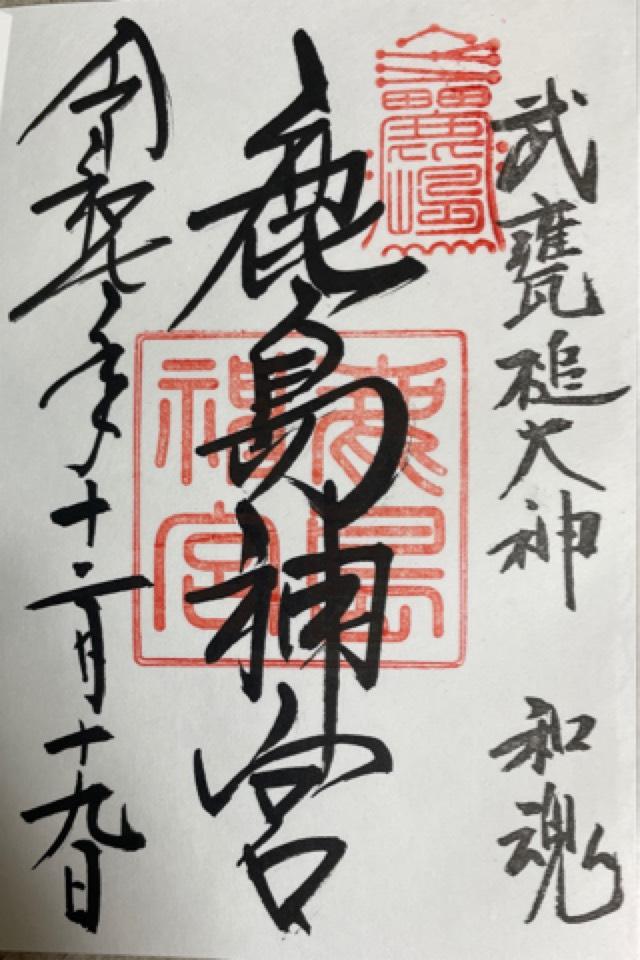 武甕槌大神 和魂
鹿島神宮
鹿島神宮
令和七年十二月十九日